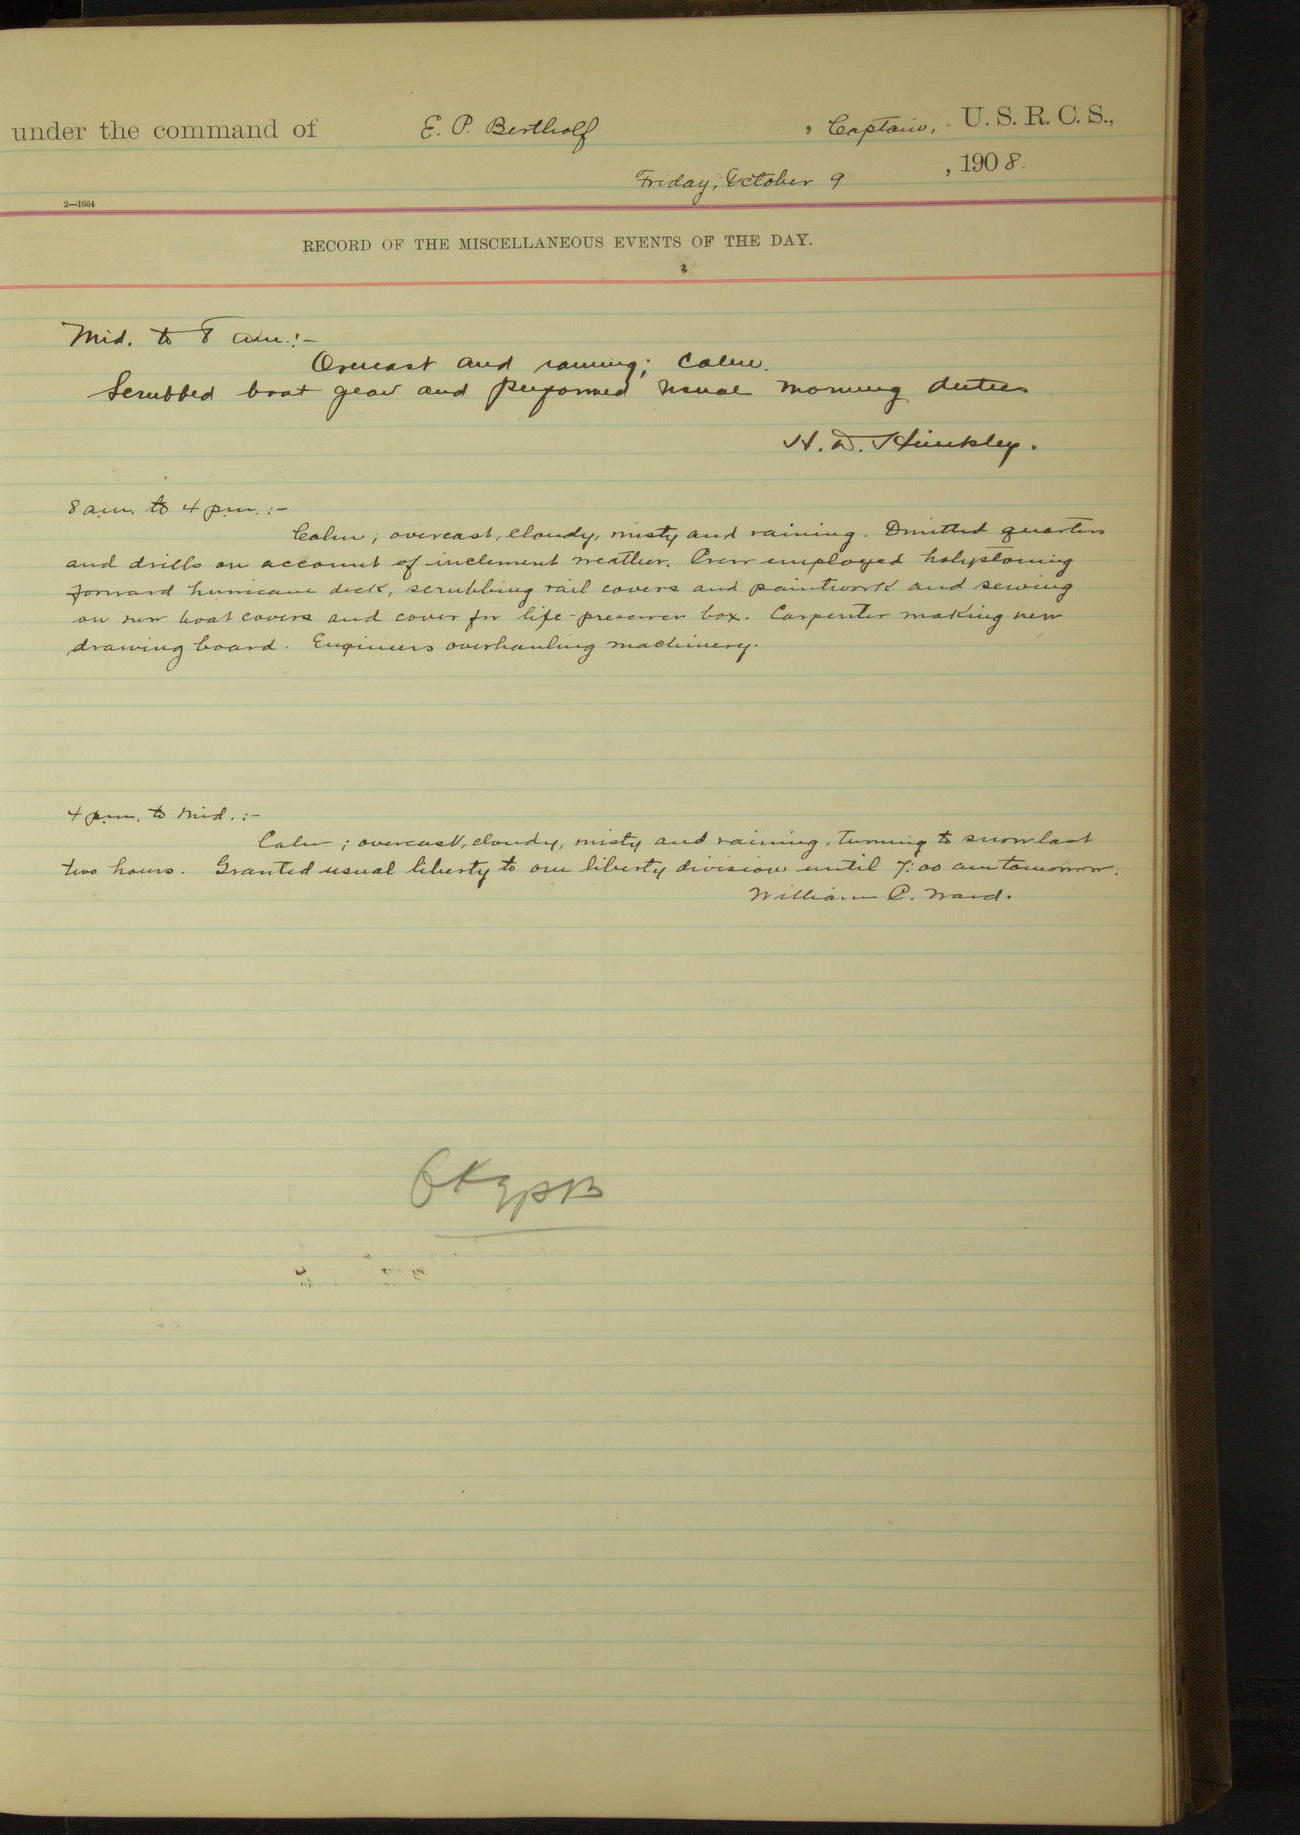 under the command of E. P. Bertholf, Captain, U. S. R. C. S.,
Friday, October 9, 1908.
2—1664
RECORD OF THE MISCELLANEOUS EVENTS OF THE DAY.
Mid. to 8 am.:-
Overcast and raining; calm.
Scrubbed boat gear and performed usual morning duties
H. D. Hinckley.
8 a.m. to 4 p.m.:-
Calm; overcast, cloudy, misty and raining. Omitted quarters
and drills on account of inclement weather. Crew employed holystoning
forward hurricane deck, scrubbing rail covers and paintwork and sewing
on new boat covers and cover for life-preserver box. Carpenter making new
drawing board. Engineers overhauling machinery.
4 p.m. to Mid.:-
Calm; overcast, cloudy, misty and raining, turning to snow last
two hours. Granted usual liberty to one liberty division until 7:00 am tomorrow.
William P. Ward.
OK EPB